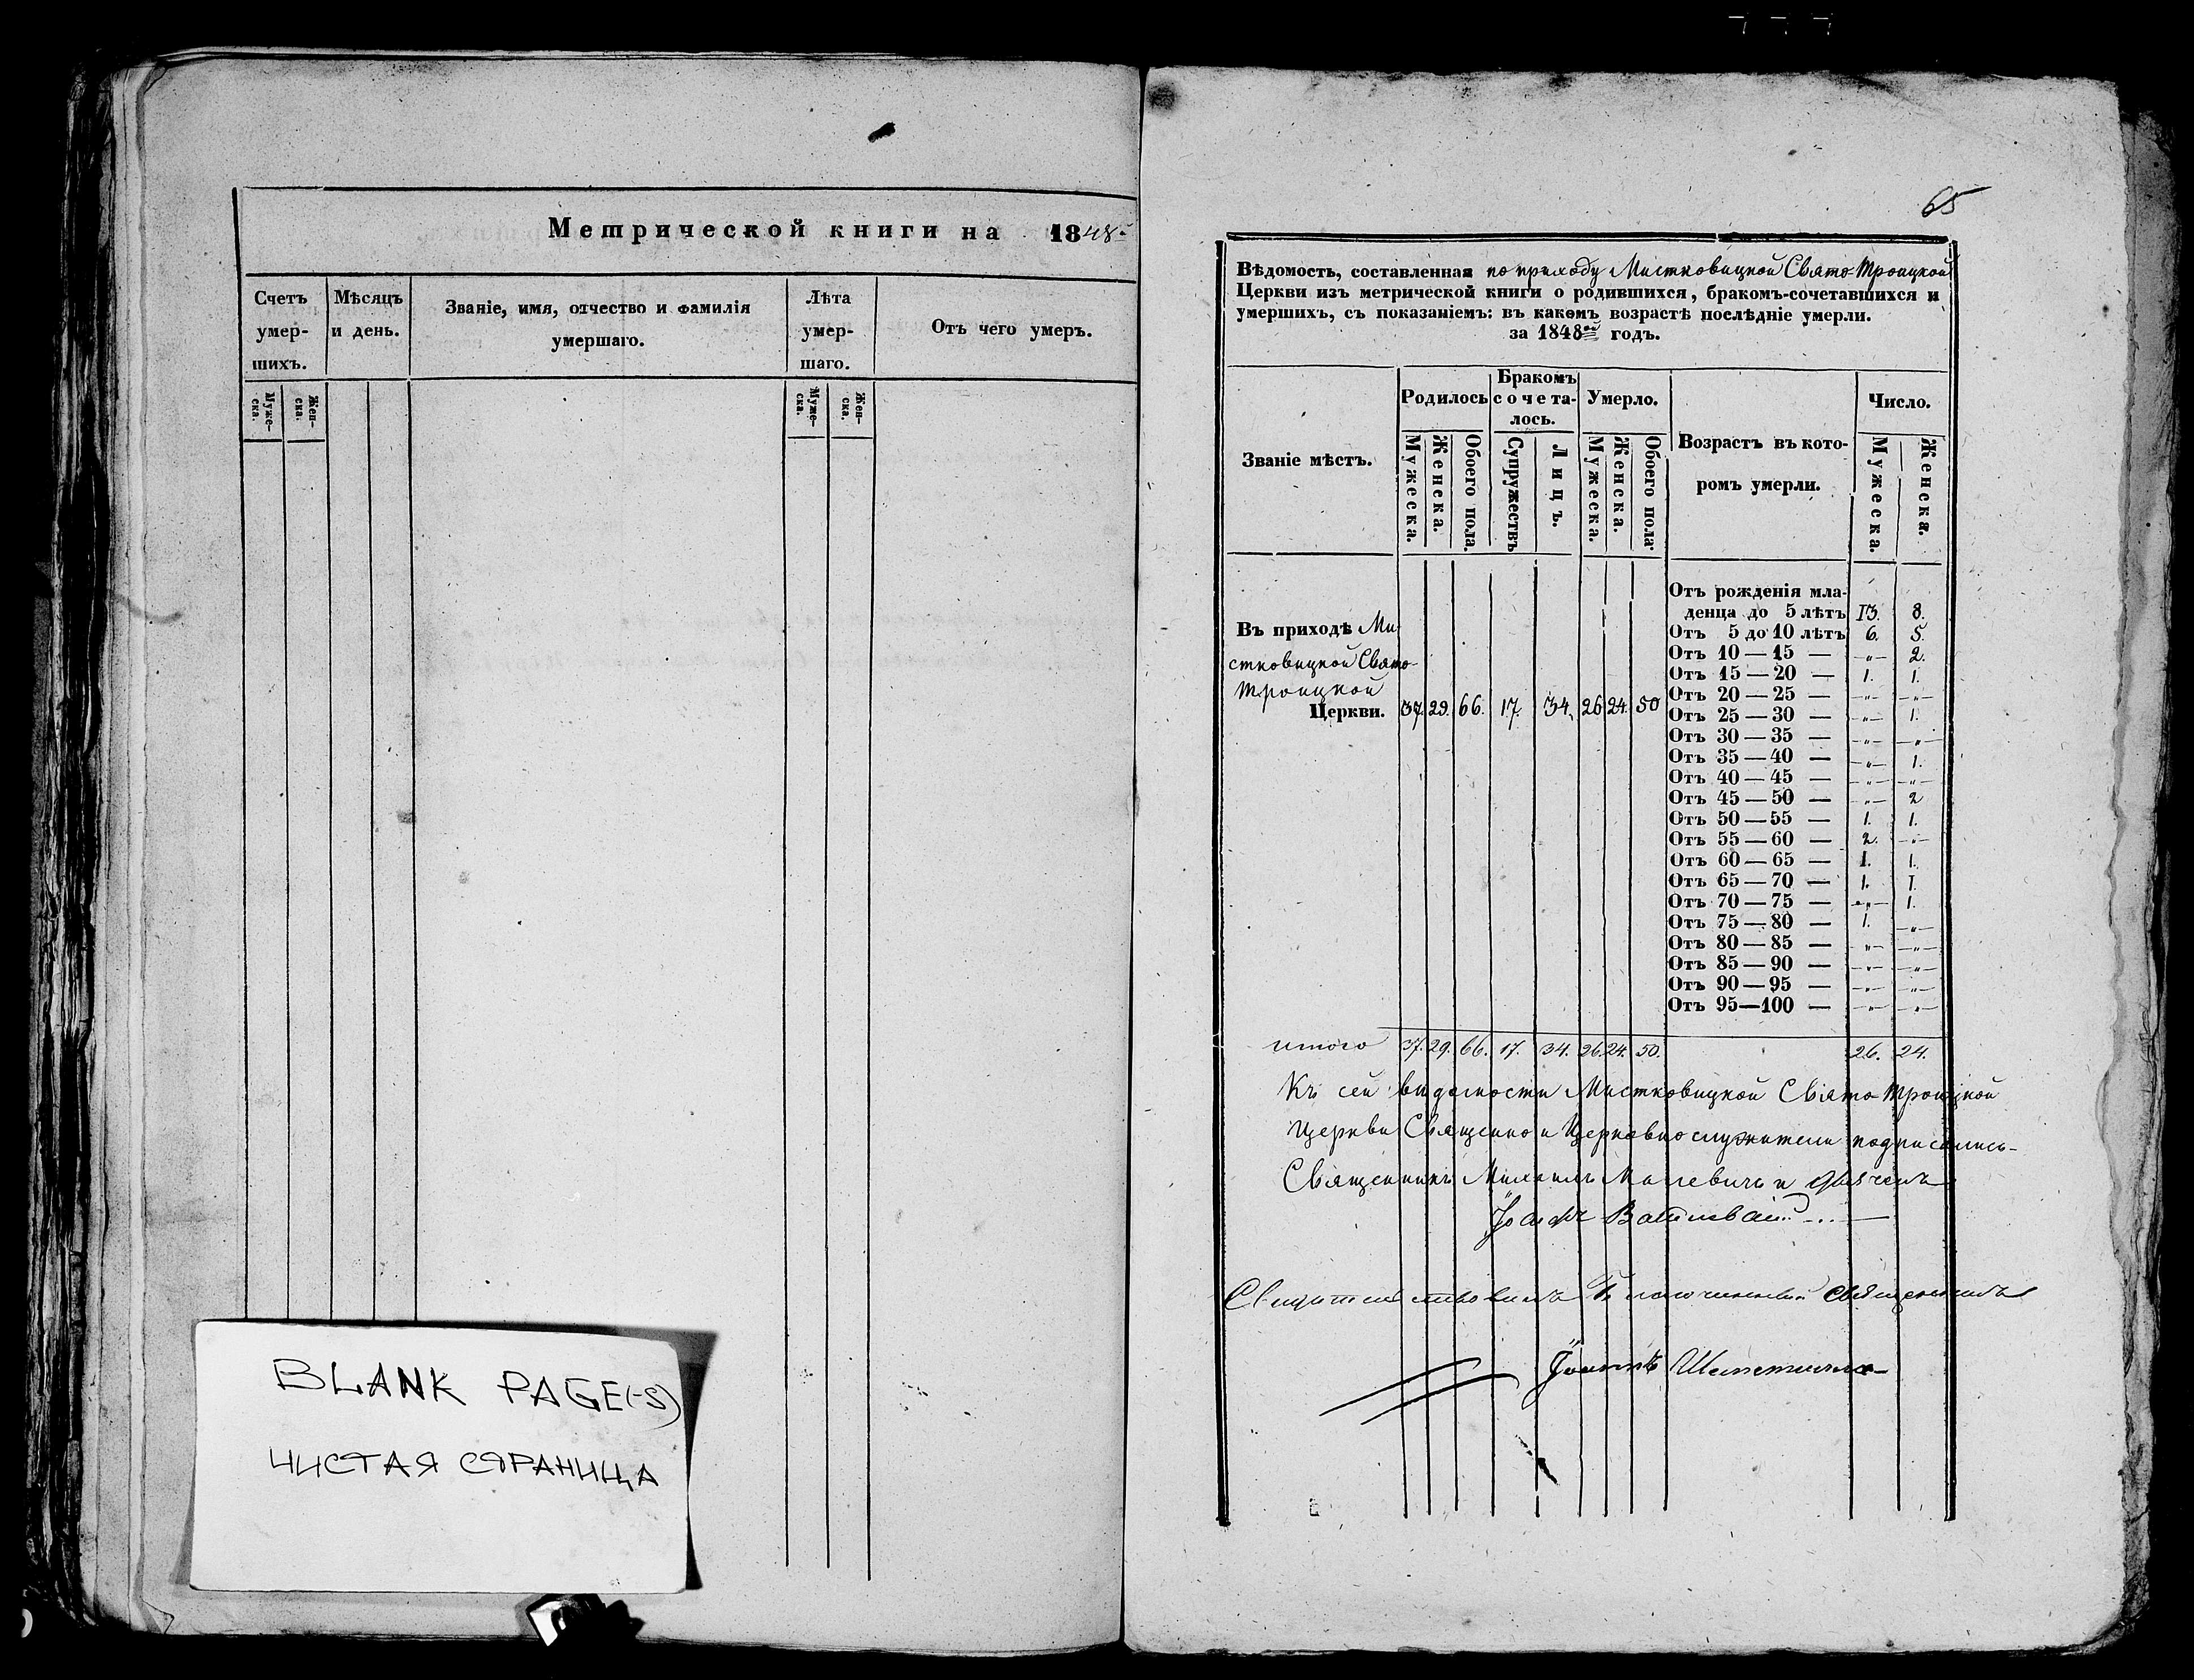 Метрической книги на 1848
Счетъ умер-шихъ.
Мѣсяцъ и день.
Званіе, имя, отчество и фамилія умершаго.
Лѣта умер-шаго.
Отъ чего умеръ.
Муже-ска.
Жен-ска.
Муже-ска.
Жен-ска.
BLANK PAGE(-S)
ЧИСТАЯ СТРАНИЦА
65
Вѣдомость, составленная по приходу Мистковицкой Свято Троицкой
Церкви изъ метрической книги о родившихся, бракомъ-сочетавшихся и
умершихъ, съ показаніемъ: въ какомъ возрастѣ послѣдніе умерли.
за 1848ой годъ.
Званіе мѣстъ.
Родилось
Бракомъ сочета-лось.
Умерло.
Возрастъ въ кото-ромъ умерли.
Число.
Мужеска. Женска. Обоего пола. Супружествъ Лицъ. Мужеска. Женска. Обоего пола. Мужеска. Женска.
Въ приходѣ Ми-
стковицкой Свято-
Троицкой
Церкви. 37. 29. 66. 17. 34. 26 24. 50
Отъ рожденія мла-
денца до 5 лѣтъ 13. 8.
Отъ 5 до 10 лѣтъ 6. 5.
Отъ 10 — 15 — —„— 2.
Отъ 15 — 20 — 1. 1.
Отъ 20 — 25 — —„— —„—
Отъ 25 — 30 — —„— 1.
Отъ 30 — 35 — —„— —„—
Отъ 35 — 40 — —„— 1.
Отъ 40 — 45 — —„— —„—
Отъ 45 — 50 — —„— 2
Отъ 50 — 55 — 1. 1.
Отъ 55 — 60 — 2. —„—
Отъ 60 — 65 — 1. 1.
Отъ 65 — 70 — 1. 1.
Отъ 70 — 75 — —„— 1.
Отъ 75 — 80 — 1. —„—
Отъ 80 — 85 — —„— —„—
Отъ 85 — 90 — —„— —„—
Отъ 90 — 95 — —„— —„—
Отъ 95—100 — —„— —„—
итого 37. 29. 66. 17. 34. 26. 24. 50. 26. 24.
Къ сей видомости Мистковицкой Свято Троицкой
Церкви Священно и Церковно служители подписались
Священникъ Михаилъ Малевичъ и дьячекъ
Свидительствовалъ Благочинный священникъ
Іоаннъ